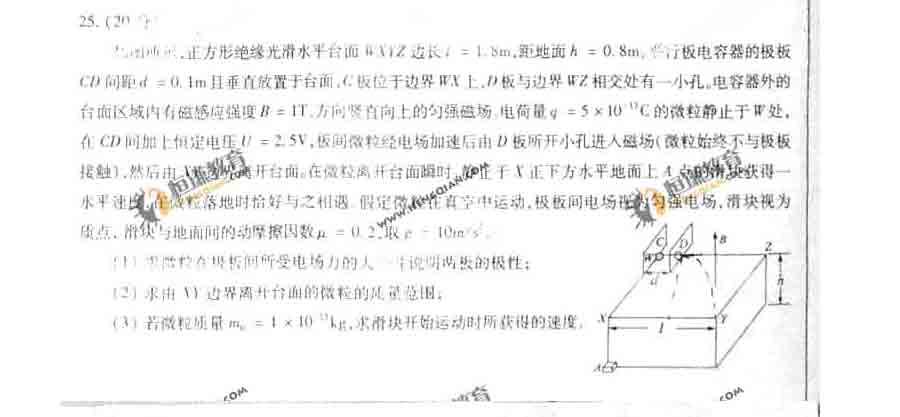 25. (20 分)
,正方形绝缘光滑水平台面 WXYZ 边长 l = 1.8m,距地面 h = 0.8m。平行板电容器的极板
CD 间距 d = 0.1m 且垂直放置于台面,C 板位于边界 WX 上,D 板与边界 WZ 相交处有一小孔。电容器外的
台面区域内有磁感应强度 B = 1T、方向竖直向上的匀强磁场。电荷量 q = 5 × 10⁻¹³C 的微粒静止于 W 处,
在 CD 间加上恒定电压 U = 2.5V,板间微粒经电场加速后由 D 板所开小孔进入磁场(微粒始终不与极板
接触),然后由 离开台面。在微粒离开台面瞬时,静止于 X 正下方水平地面上 A 点的滑块获得一
水平速度,在微粒落地时恰好与之相遇。假定微粒在真空中运动,极板间电场视为匀强电场,滑块视为
质点,滑块与地面间的动摩擦因数 μ = 0.2,取 g = 10m/s²。
(1) 求微粒在极板间所受电场力的大 并说明两板的极性;
(2) 求由 XY 边界离开台面的微粒的质量范围;
(3) 若微粒质量 m₀ = 1 × 10⁻¹³kg,求滑块开始运动时所获得的速度。
C
D
B
W
Z
d
h
X
l
Y
A
恒谦教育
WWW.HENGQIAN.COM
恒谦教育
.COM
育
.COM